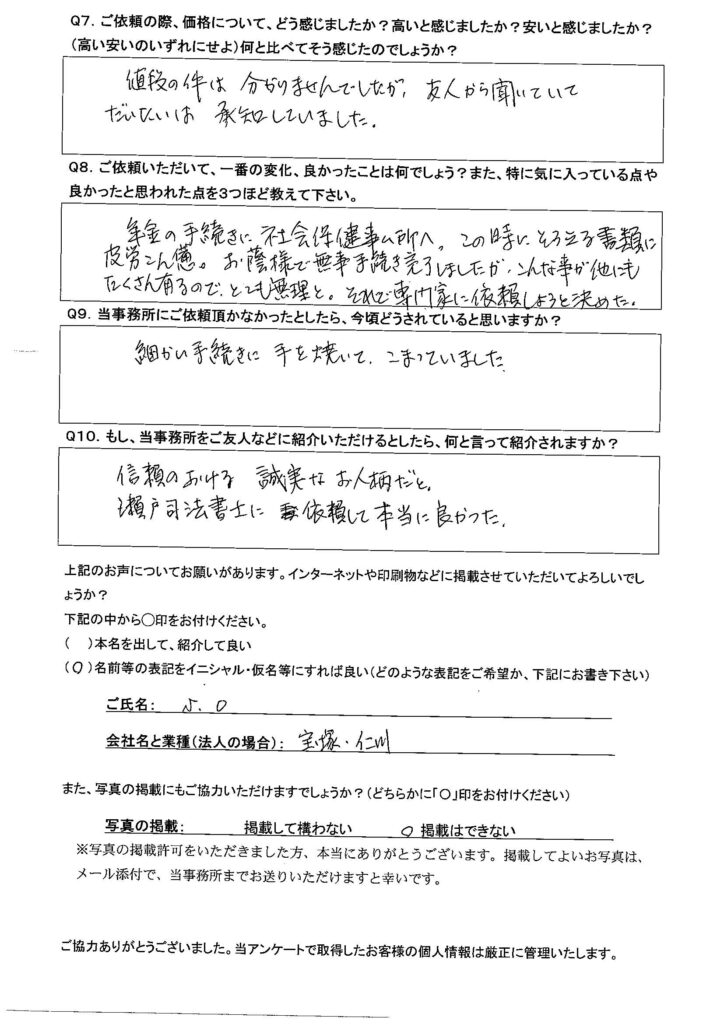 Q7．ご依頼の際、価格について、どう感じましたか？高いと感じましたか？安いと感じましたか？
（高い安いのいずれにせよ）何と比べてそう感じたのでしょうか？
値段の件は 分かりませんでしたが、友人から聞いていて
だいたいは 承知していました。
Q8．ご依頼いただいて、一番の変化、良かったことは何でしょう？また、特に気に入っている点や
良かったと思われた点を3つほど教えて下さい。
年金の手続きに 社会保健事ム所へ。この時にそろえる書類に
疲労こん憊。お蔭様で無事手続き完了しましたが、こんな事が他にも
たくさん有るので、とても無理と。それで専門家に依頼しようと決めた。
Q9．当事務所にご依頼頂かなかったとしたら、今頃どうされていると思いますか？
細かい手続きに 手を焼いて、こまっていました。
Q10．もし、当事務所をご友人などに紹介いただけるとしたら、何と言って紹介されますか？
信頼のおける 誠実な お人柄だと。
瀬戸司法書士に 依頼して本当に良かった。
上記のお声についてお願いがあります。インターネットや印刷物などに掲載させていただいてよろしいでし
ょうか？
下記の中から〇印をお付けください。
（　）本名を出して、紹介して良い
（〇）名前等の表記をイニシャル・仮名等にすれば良い（どのような表記をご希望か、下記にお書き下さい）
ご氏名： . O
会社名と業種（法人の場合）： 宝塚・仁川
また、写真の掲載にもご協力いただけますでしょうか？（どちらかに「〇」印をお付けください）
写真の掲載： 掲載して構わない 〇 掲載はできない
※写真の掲載許可をいただきました方、本当にありがとうございます。掲載してよいお写真は、
メール添付で、当事務所までお送りいただけますと幸いです。
ご協力ありがとうございました。当アンケートで取得したお客様の個人情報は厳正に管理いたします。